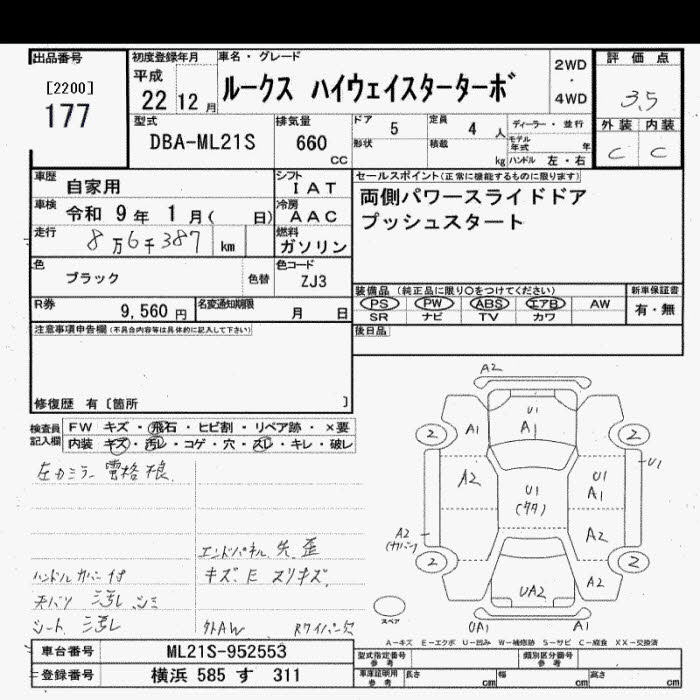 出品番号
[2200]
177
初度登録年月
平成
22年 12月
車名・グレード
ルークス ハイウェイスターターボ
2WD
・
4WD
評価点
3.5
外装 内装
C C
型式
DBA-ML21S
排気量
660 CC
ドア 5
形状
定員 4人
積載 kg
ディーラー・並行
モデル年式 年
ハンドル 左・右
車歴 自家用
シフト IAT
車検 令和 9年 1月( 日)
冷房 AAC
走行 8万6千387 km
燃料 ガソリン
色 ブラック 色替
色コード ZJ3
R券 9,560円
名変通知期限 月 日
セールスポイント(正常に機能するものに限ります)
両側パワースライドドア
プッシュスタート
装備品(純正品に限り○をつけてください)
PS PW ABS エアB AW
SR ナビ TV カワ
新車保証書
有・無
後日品
注意事項申告欄(不具合内容等は具体的に記入して下さい)
修復歴 有〔箇所 〕
検査員記入欄
FW キズ・飛石・ヒビ割・リペア跡・×要
内装 キズ・汚レ・コゲ・穴・スレ・キレ・破レ
左カミラー電格不良
エンドパネル 先 歪
ハンドルカバー付
キズ、E スリキズ
天バリ 汚レ シミ
シート 汚レ
外AW
Rワイパー欠
A2
U1
A1
A1
2
2
A2
U1
(タタ)
U1
A1
U1
A2
(カバー)
A2
2
2
UA2
A2
UA1
A1
スペア
A-キズ E-エクボ U-凹み W-補修跡 S-サビ C-腐食 XX-交換済
車台番号 ML21S-952553
登録番号 横浜 585 す 311
型式指定番号 参考
類別区分番号 参考
車庫証明用 参考
長さ cm
幅 cm
高さ cm